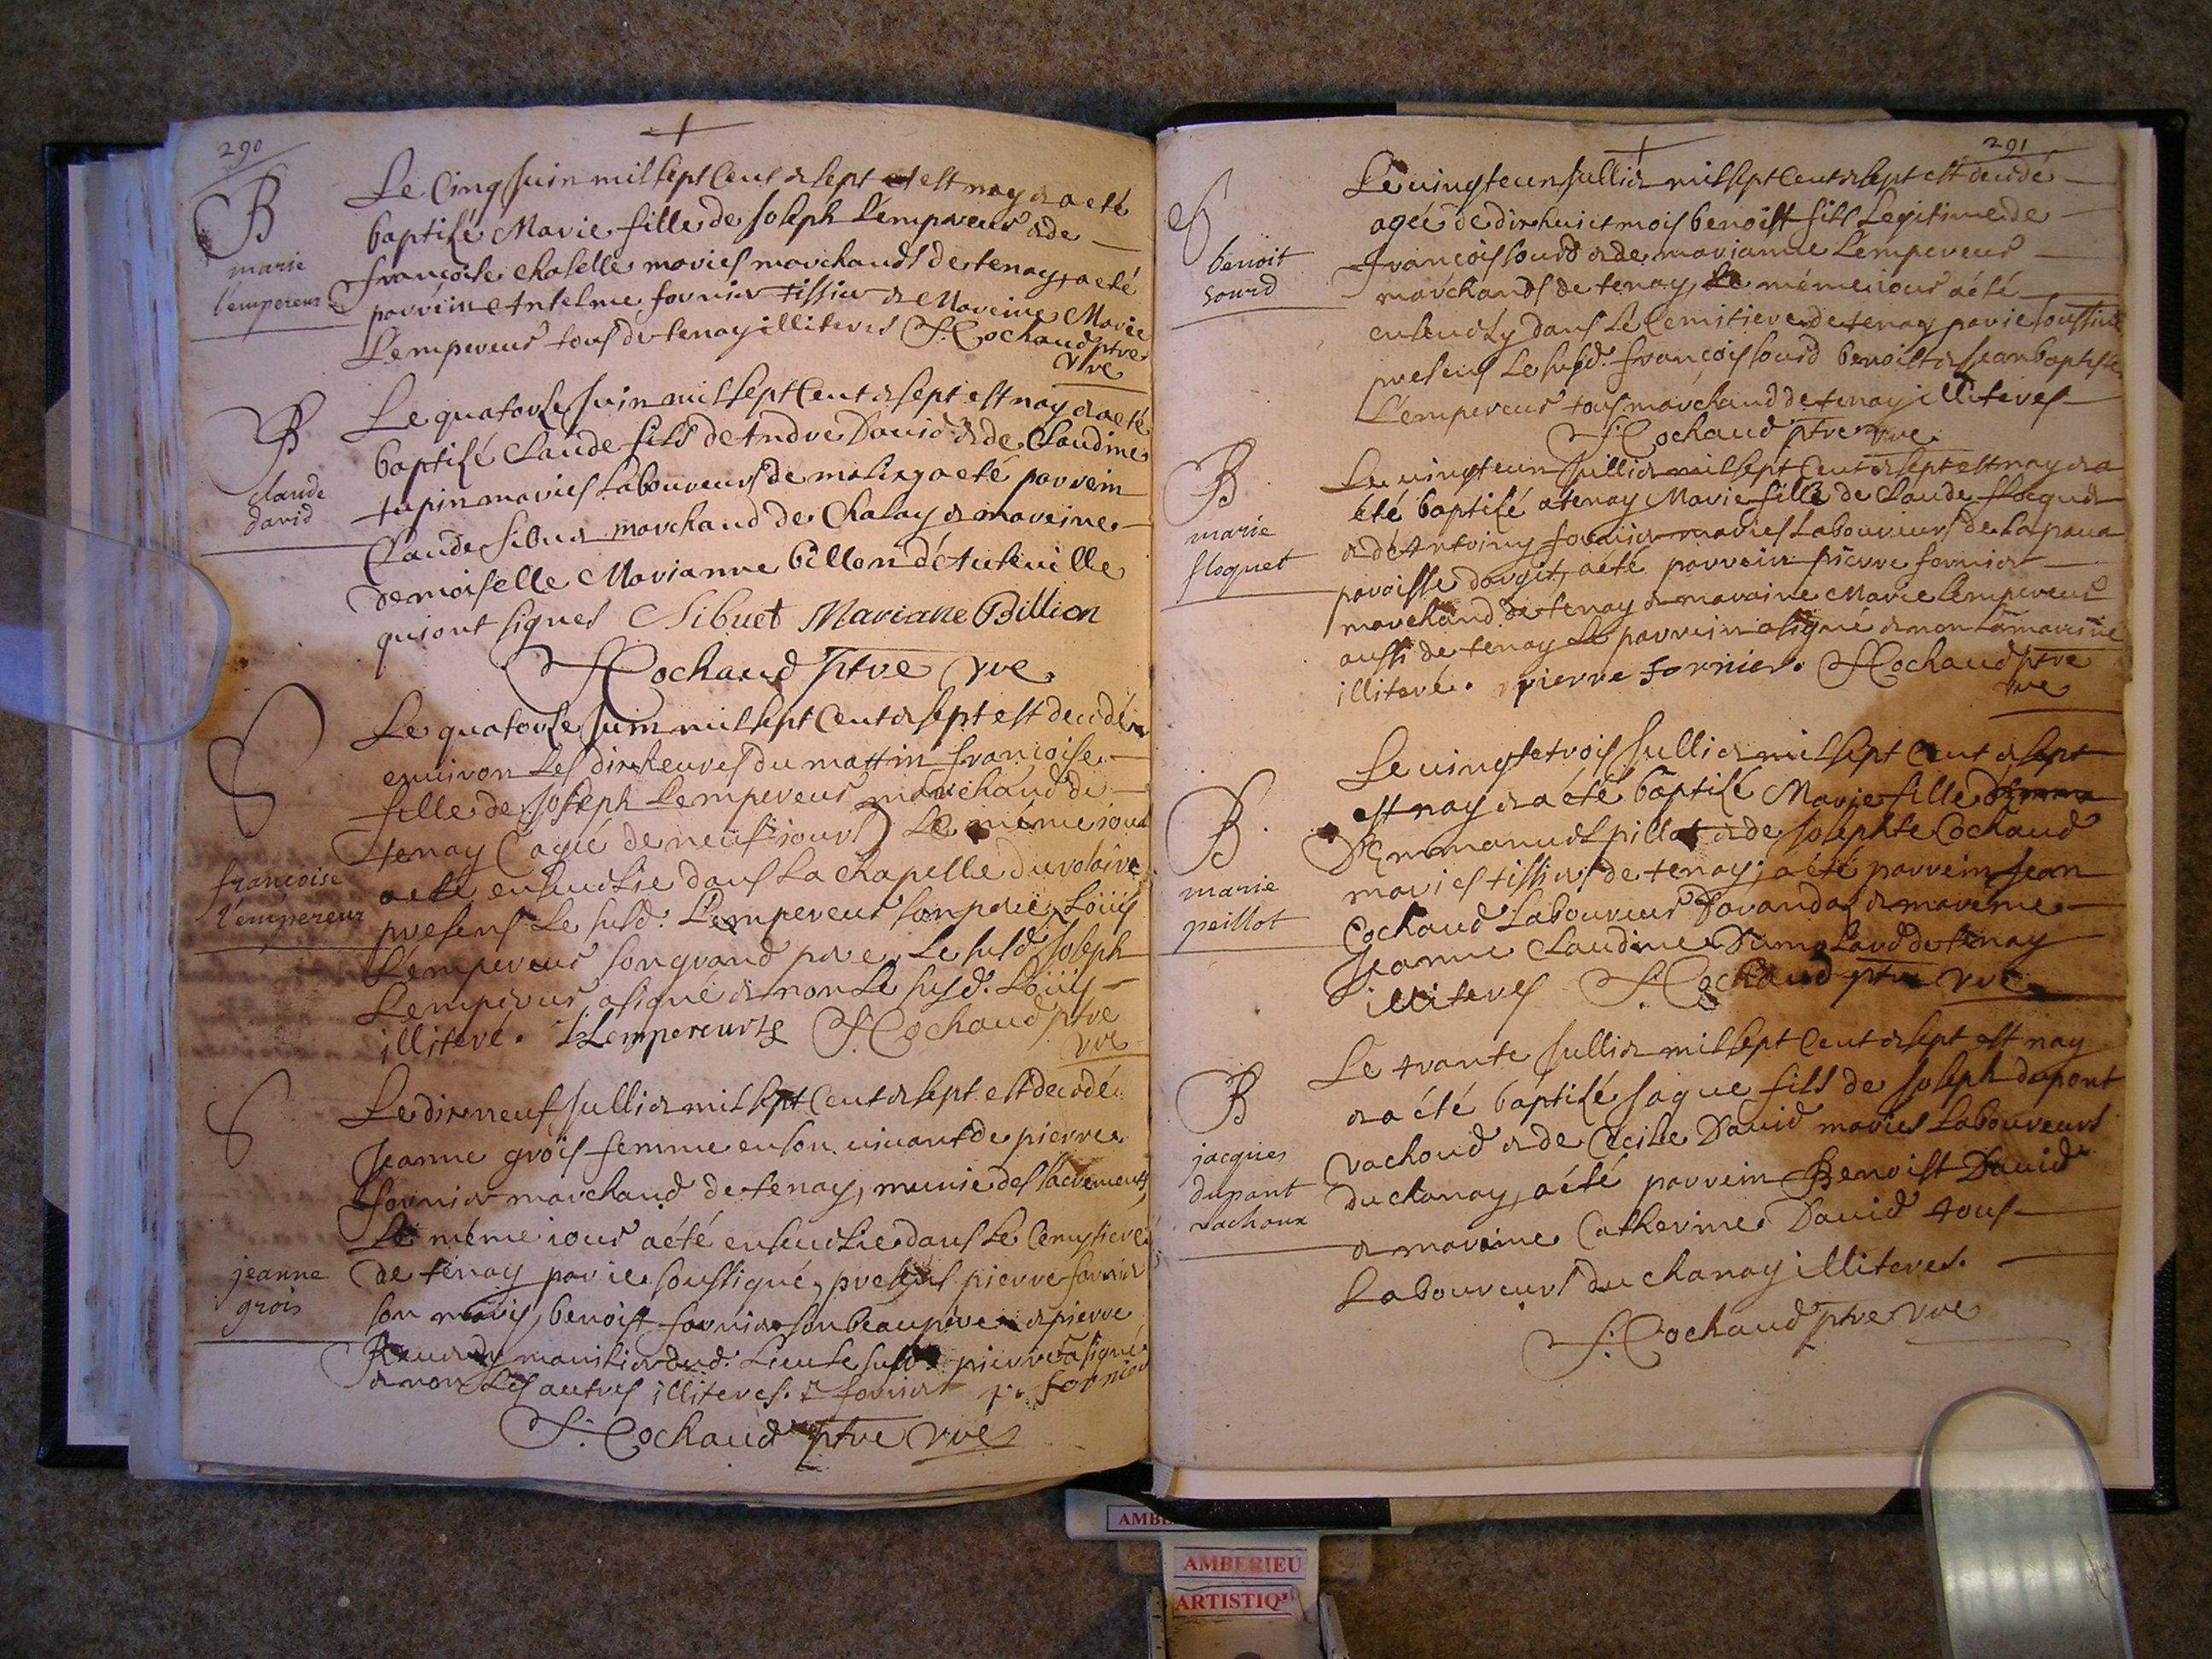 290
B
marie
l'empereur
Le Cinq Juin mil sept Cent & sept est nay & a eté
baptisé Marie fille de Joseph L'empereur & de
francoise Chaselle mariés marchands de tenay, a eté
parrein Antelme fornier tissier & Mareine Marie
L'empereur tous de tenay illiteres S. Cochaud ptre
vre
B
claude
david
Le quatorse Juin mil sept Cent & sept est nay & a eté
baptisé Claude fils de Andre David & de Claudine
tupin mariés Laboureurs de malix, a eté parrein
Claude sibuet marchand de Chalay & mareine
demoiselle Marianne billon d'
qui ont signes Sibuet Mariane Billion
S. Cochaud ptre vre
S
francoise
l'empereur
Le quatorse Juin mil sept Cent & sept est decedée
environ Les dix heures du mattin francoise
fille de Joseph L'empereur marchand de
tenay (agée de neuf jours) Le même jour
a eté ensevelie dans La chapelle du rosaire
presens Le susd. L'empereur son pere, Loüis
L'empereur son grand pere, Le susd Joseph
L'empereur a signé & non Le susd. Loüis
illiteré. Lempereur S. Cochaud ptre
vre
S
jeanne
grois
Le dix neuf Jullier mil sept Cent & sept est decedé
Jeanne grois femme en son vivant de pierre
fornier marchand de tenay, munie des sacrements
Le même jour a été ensevelie dans Le Cemitiere
de tenay par je soussigné, presens pierre fornier
son maris, benoist fornier son beaupere & pierre
dud. Lieu Le susd. pierre a signé
& non Les autres illiteres. fornier p. fornier
S. Cochaud ptre vre
291
S
benoit
sourd
Le vingt eun Jullier mil sept Cent & sept est decedé
agée de dix huict mois benoist fils Legitime de
François sourd & de marianne L'empereur
marchands de tenay, Le même jour a été
ensevely dans Le Cemitiere de tenay par je soussiné
presens Le susd. françois sourd benoist & Jean baptiste
L'empereur tous marchand de tenay illiteres
S. Cochaud ptre vre
B
marie
floquet
Le vingt eun Jullier mil sept Cent & sept est nay & a
été baptisé a tenay Marie fille de Claude floquet
& de Antoiny fornier mariés Laboureurs de Lapaua
paroisse dorgit, a été parrein pierre fornier
marchand de tenay & maraine Marie L'empereur
aussi de tenay Le parrein a signé & non La mareine
illiteré. pierre fornier. S. Cochaud ptre
vre
B
marie
peillot
Le vingt et trois Jullier mil sept Cent & sept
est nay & a été baptisé Marie fille
D'Emmanuel pillot & de Josephte Cochaud
mariés tissiers de tenay, a été parrein Jean
Cochaud Laboureur Darandas & mareine
Jeanne Claudine Dumolard de tenay
illiteres S. Cochaud ptre vre
B
jacques
dupont
vachoux
Le trante Jullier mil sept Cent & sept est nay
& a été baptisé Jaque fils de Joseph dupont
vachoud & de Cecile David mariés Laboureurs
du chanay, a été parrein Benoist David
& maraine Catherine David tous
Laboureurs du chanay illiteres.
S. Cochaud ptre vre
AMBERIEU
ARTISTIQU